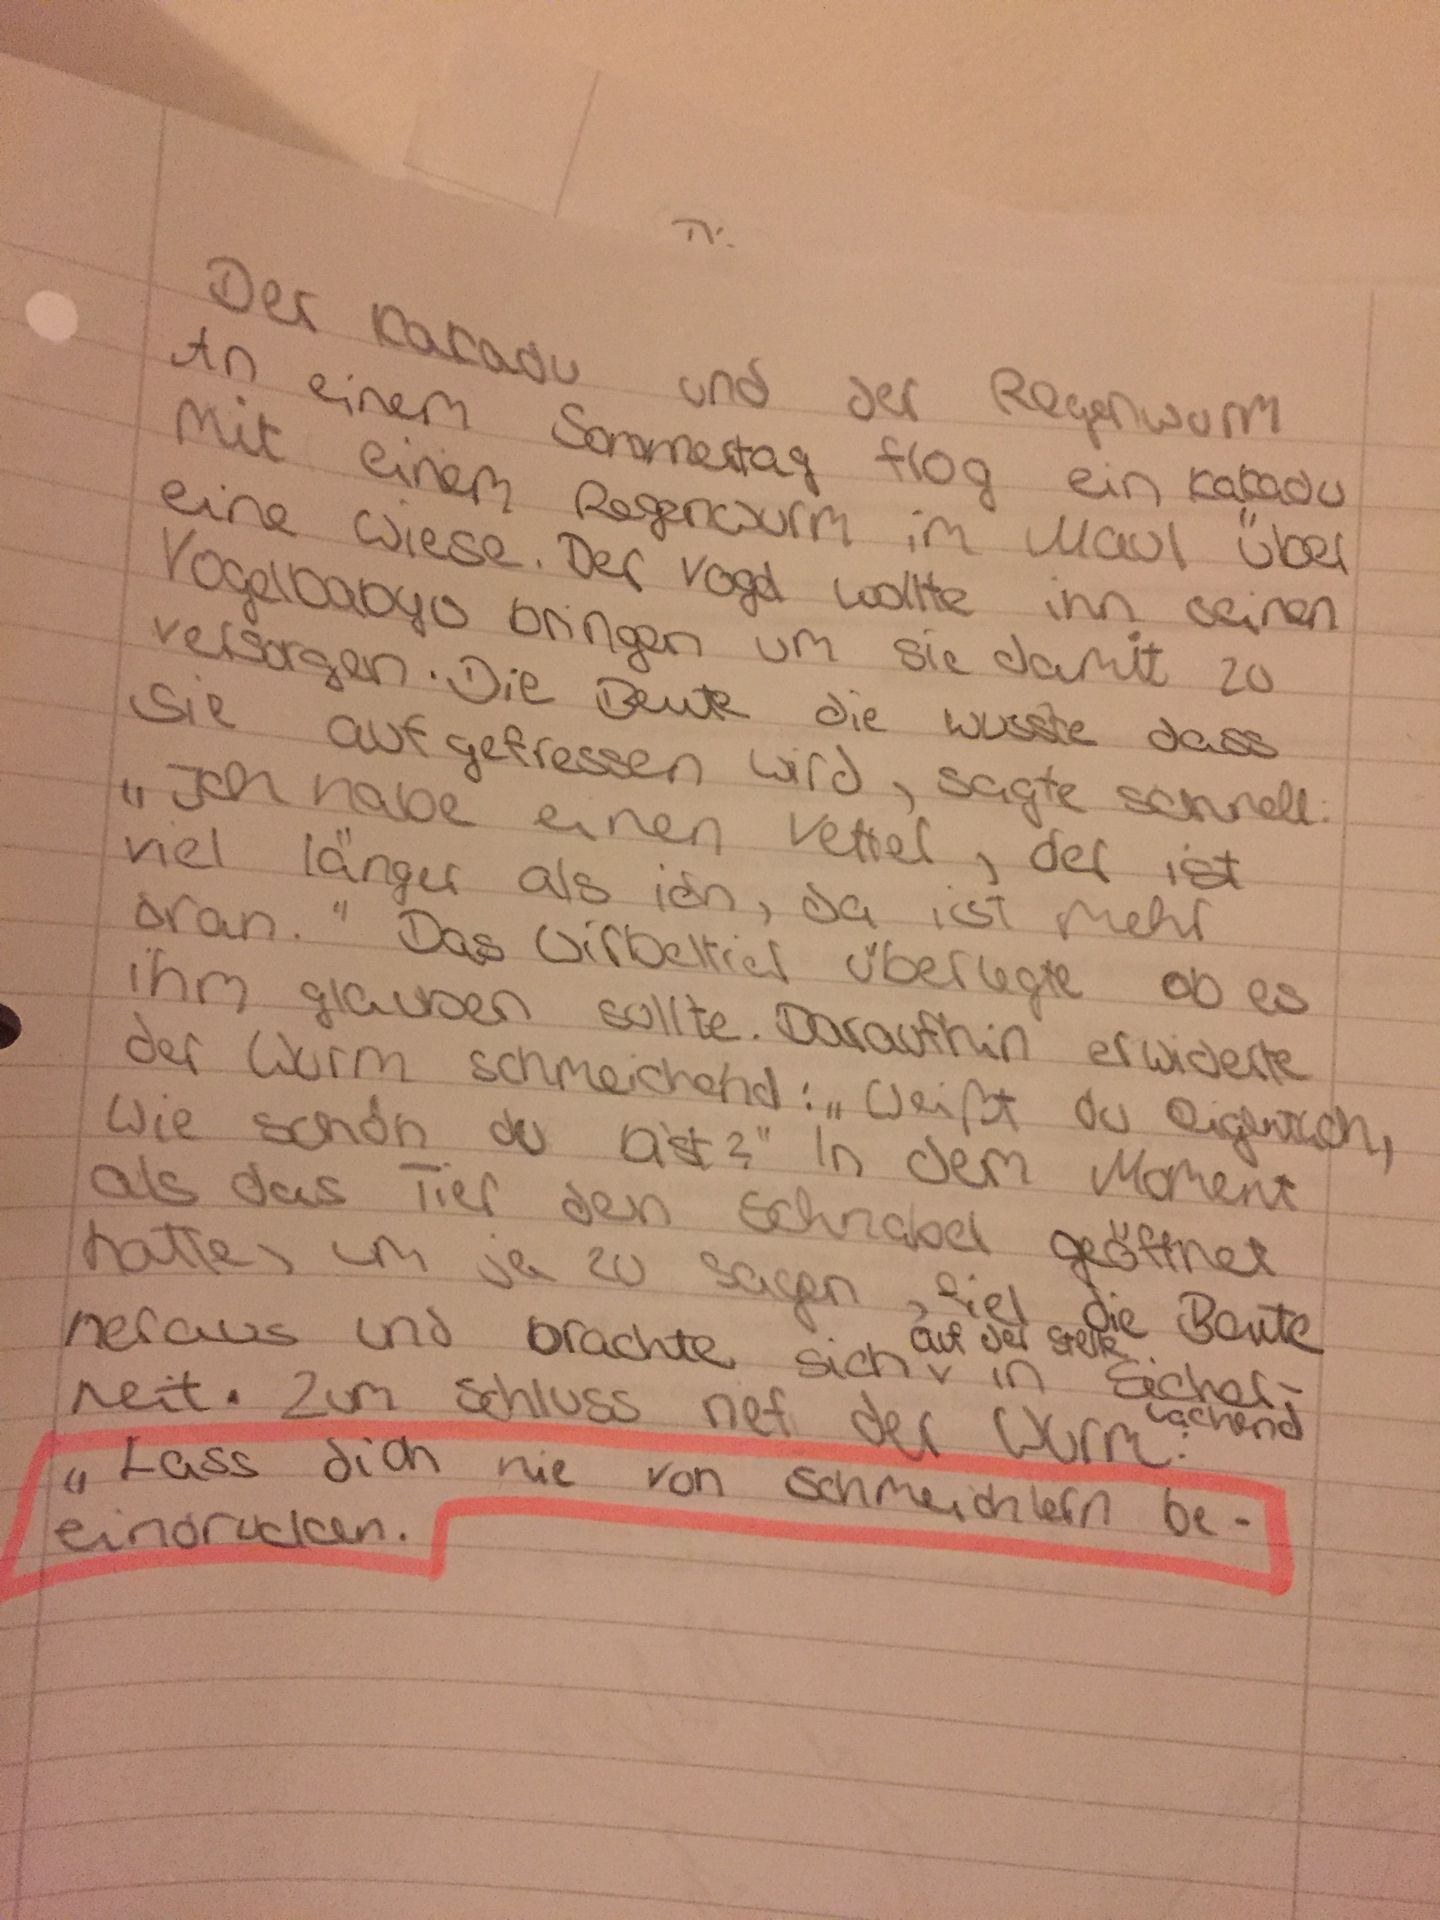 Der Kakadu und der Regenwurm
An einem Sommertag flog ein Kakadu
Mit einem Regenwurm im Maul über
eine Wiese. Der Vogel wollte ihn seinen
Vogelbabys bringen um sie damit zu
versorgen. Die Beute die wusste dass
sie aufgefressen wird, sagte schnell:
"Ich habe einen Vetter, der ist
viel länger als ich, da ist mehr
dran." Das Wirbeltier überlegte ob es
ihm glauben sollte. Daraufhin erwiderte
der Wurm schmeichend: "Weißt du eigentlich,
wie schön du bist?" In dem Moment
als das Tier den Schnabel geöffnet
hatte, um ja zu sagen, fiel die Beute
heraus und brachte sich auf der Stelle in Sicher-
heit. Zum Schluss rief der Wurm lachend:
"Lass dich nie von Schmeichlern be-
eindrucken.